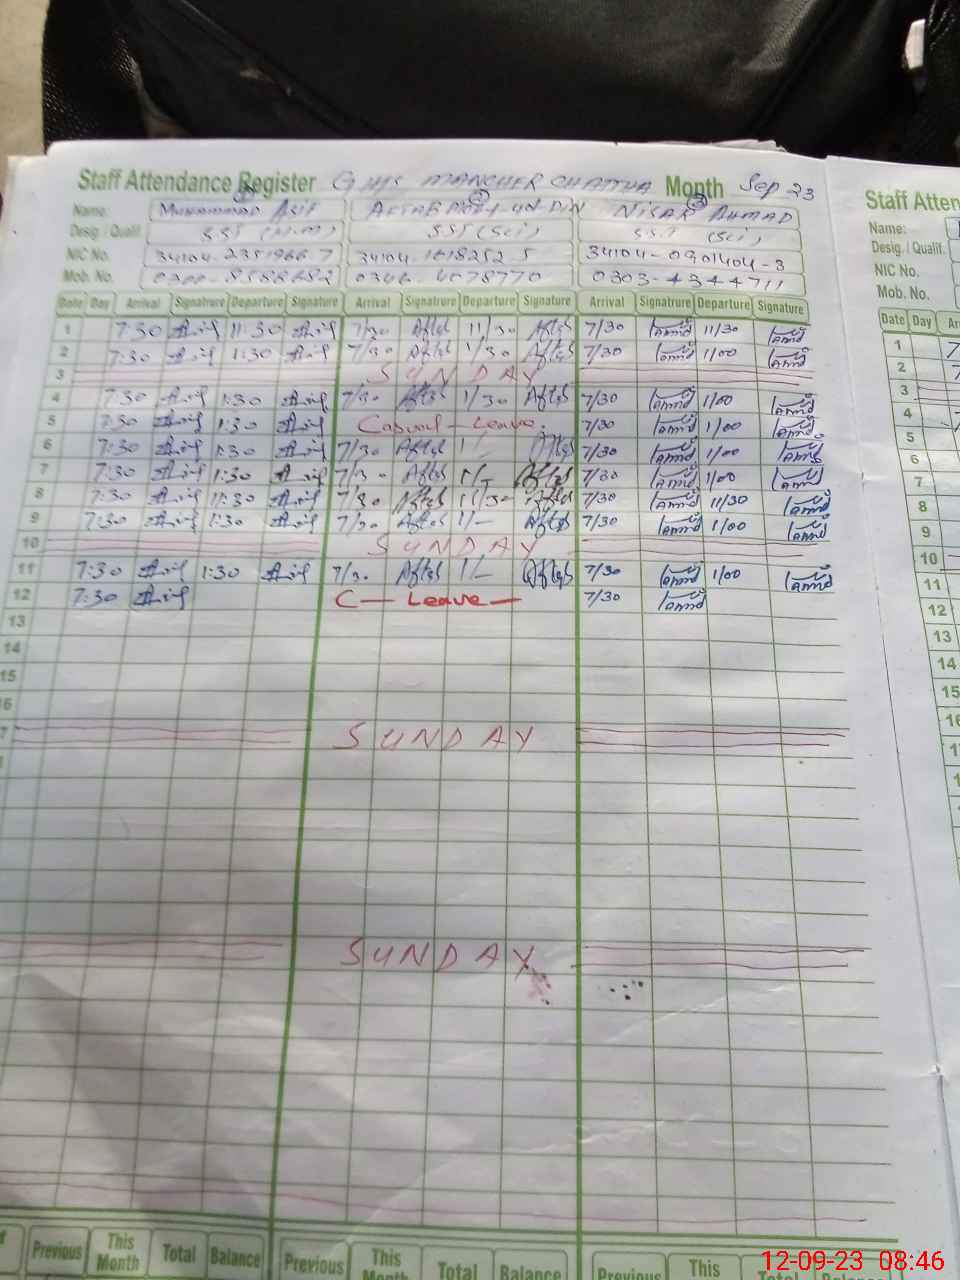 Staff Attendance Register GHS MANCHER CHATTHA Month Sep 23
Name: Muhammad Asif AFTAB -UD-DIN NISAR AHMAD
Desig. / Qualif. SST (H.M) SST (Sci) SST (Sci)
NIC No. 34104-2351966-7 34104-1618252-5 34104-0901404-3
Mob. No. 0300-8588682 0346-4078770 0303-4344711
Date Day Arrival Signatrure Departure Signature Arrival Signatrure Departure Signature Arrival Signatrure Departure Signature
1 7:30 Asif 11:30 Asif 7/30 Aftab 11/30 Aftab 7/30 11/30
2 7:30 Asif 1:30 Asif 7/30 Aftab 1/30 Aftab 7/30 1/00
3 SUNDAY
4 7:30 Asif 1:30 Asif 7/30 Aftab 1/30 Aftab 7/30 1/00
5 7:30 Asif 1:30 Asif Casual - Leave. 7/30 1/00
6 7:30 Asif 1:30 Asif 7/30 Aftab 1/- Aftab 7/30 1/00
7 7:30 Asif 1:30 Asif 7/30 Aftab 1/- Aftab 7/30 1/00
8 7:30 Asif 11:30 Asif 7/30 Aftab 11/30 Aftab 7/30 11/30
9 7:30 Asif 1:30 Asif 7/30 Aftab 1/- Aftab 7/30 1/00
10 SUNDAY
11 7:30 Asif 1:30 Asif 7/30 Aftab 1/- Aftab 7/30 1/00
12 7:30 Asif C - Leave - 7/30
13
14
15
16
7 SUNDAY
SUNDAY
Previous This Month Total Balance Previous This Month Total Balance Previous This
Staff Atten
Name:
Desig. / Qualif.
NIC No.
Mob. No.
Date Day Ar
1
2
3
4
5
6
7
8
9
10
11
12
13
14
15
16
12-09-23 08:46